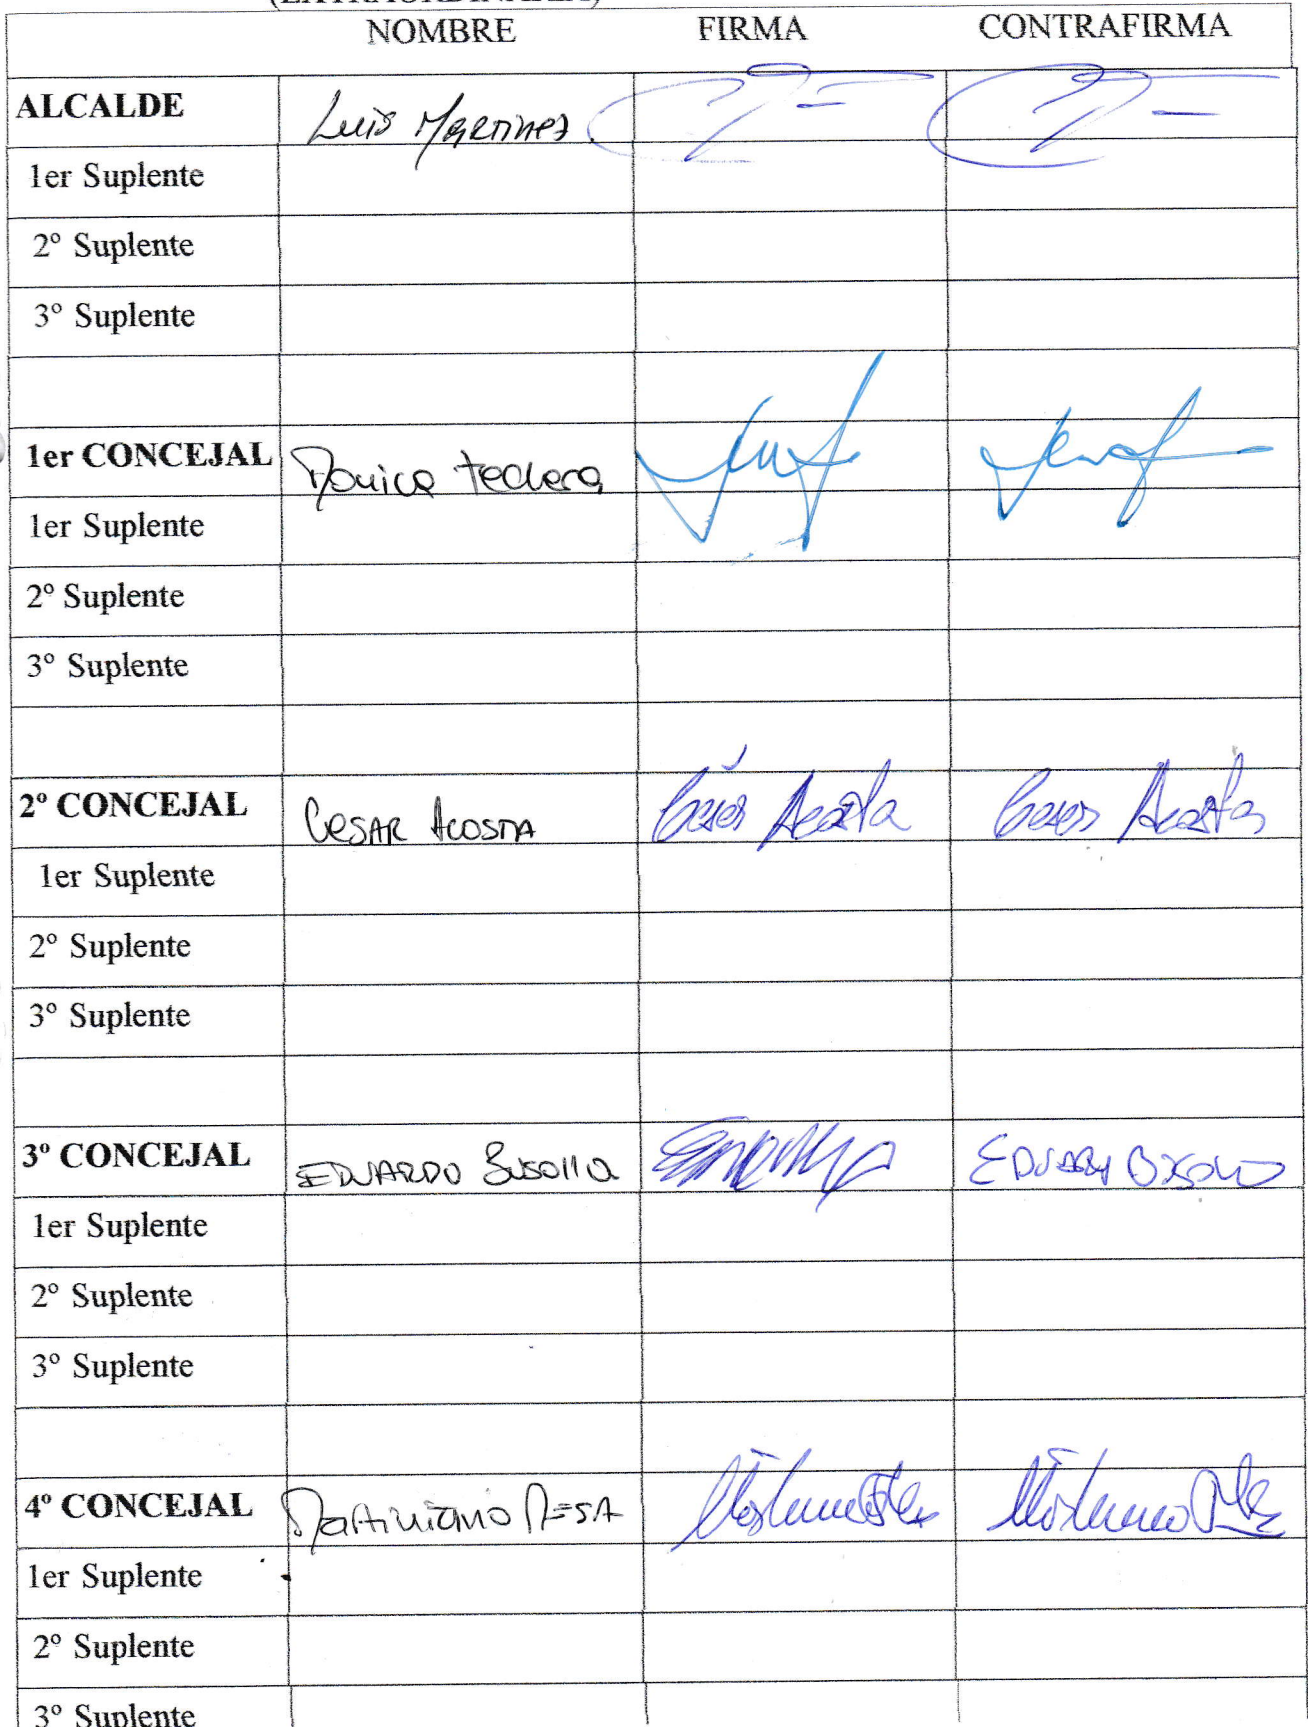 (EXTRAORDINARIA)
NOMBRE FIRMA CONTRAFIRMA
ALCALDE Luis Martinez
1er Suplente
2º Suplente
3º Suplente
1er CONCEJAL Monica Techera
1er Suplente
2º Suplente
3º Suplente
2º CONCEJAL CESAR ACOSTA Cesar Acosta Cesar Acosta
1er Suplente
2º Suplente
3º Suplente
3º CONCEJAL EDUARDO
1er Suplente
2º Suplente
3º Suplente
4º CONCEJAL Martiniano MESA
1er Suplente
2º Suplente
3º Suplente